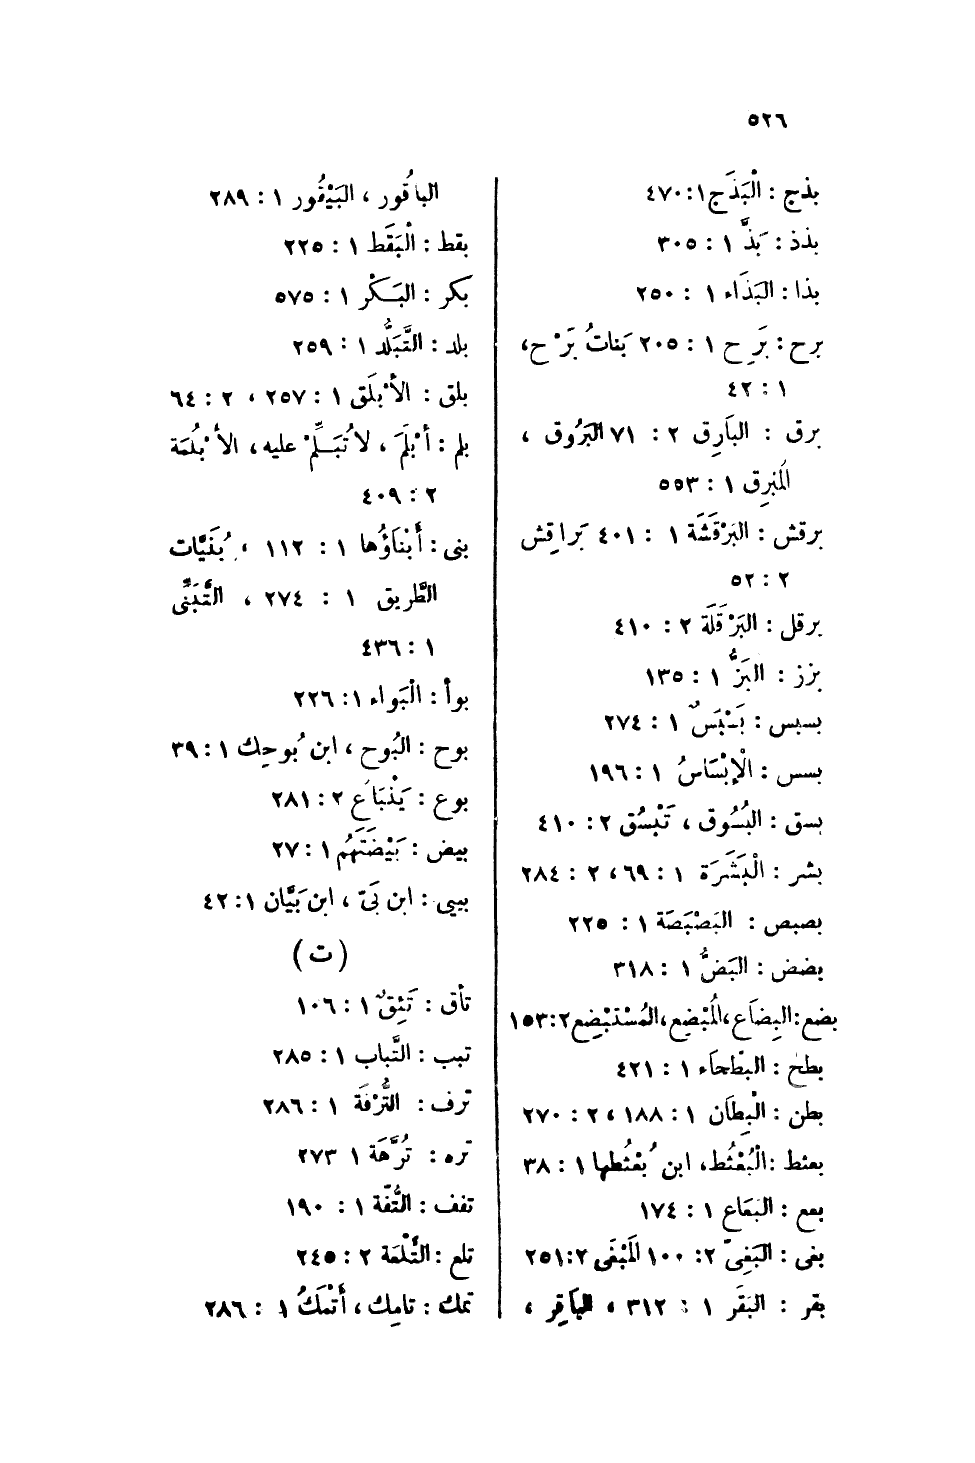 ٥٢٦
بذج : الْبَذَج ١ : ٤٧٠
بذذ : بَذَّ ١ : ٣٠٥
بذا : البَذَاء ١ : ٢٥٠
برح : بَرِح ١ : ٢٠٥ بَنات بَرْح ،
١ : ٤٢
برق : البَارِق ٢ : ٧١ البَرُوق ،
المُبرِق ١ : ٥٥٣
برقش : البَرْقَشَة ١ : ٤٠١ بَراقِش
٢ : ٥٢
برقل : البَرْقَلَة ٢ : ٤١٠
بزز : البَزُّ ١ : ١٣٥
بسبس : بَسْبَسٌ ١ : ٢٧٤
بسس : الْإبْسَاسُ ١ : ١٩٦
بسق : البُسُوق ، تَبْسُق ٢ : ٤١٠
بشر : الْبَشَرَة ١ : ٦٩ ، ٢ : ٢٨٤
بصبص : البَصْبَصَة ١ : ٢٢٥
بضض : البَضُّ ١ : ٣١٨
بضع : البِضَاع ، المُبْضِع ، المُسْتبْضِع ٢ : ١٥٣
بطح : البَطْحَاء ١ : ٤٢١
بطن : الْبِطَان ١ : ١٨٨ ، ٢ : ٢٧٠
بعثط : الْبُعْثُط ، ابن بُعْثُطها ١ : ٣٨
بعع : البَعَاع ١ : ١٧٤
بغى : البَغِىّ ٢ : ١٠٠ المَبْغَى ٢ : ٢٥١
بقر : البَقَر ١ : ٣١٢ ، البَاقِر ،
الباقُور ، البَيْقُور ١ : ٢٨٩
بقط : الْبَقَط ١ : ٢٢٥
بكر : البَكْر ١ : ٥٧٥
بلد : التَّبَلُّد ١ : ٢٥٩
بلق : الأبْلَق ١ : ٢٥٧ ، ٢ : ٦٤
بلم : أبْلَمَ ، لا تُبَلِّمْ عليه ، الأبْلُمَة
٢ : ٤٠٩
بنى : أبْنَاؤُها ١ : ١١٢ ، بُنَيَّات
الطَّريق ١ : ٢٧٤ ، التَّبَنِّى
١ : ٤٣٦
بوأ : الْبَواء ١ : ٢٢٦
بوح : البُوح ، ابن بُوحِك ١ : ٣٩
بوع : يَنْبَاع ٢ : ٢٨١
بيض : بَيْضَتَهُم ١ : ٢٧
بيى : ابن بَىّ ، ابن بَيَّان ١ : ٤٢
(ت)
تأق : تَئِقٌ ١ : ١٠٦
تبب : التَّباب ١ : ٢٨٥
ترف : التُّرْفَة ١ : ٢٨٦
تره : تُرَّهَة ١ ٢٧٣
تفف : التُّفّة ١ : ١٩٠
تلع : التَّلْعَة ٢ : ٢٤٥
تمك : تامِك ، أَتْمَكُ ١ : ٢٨٦